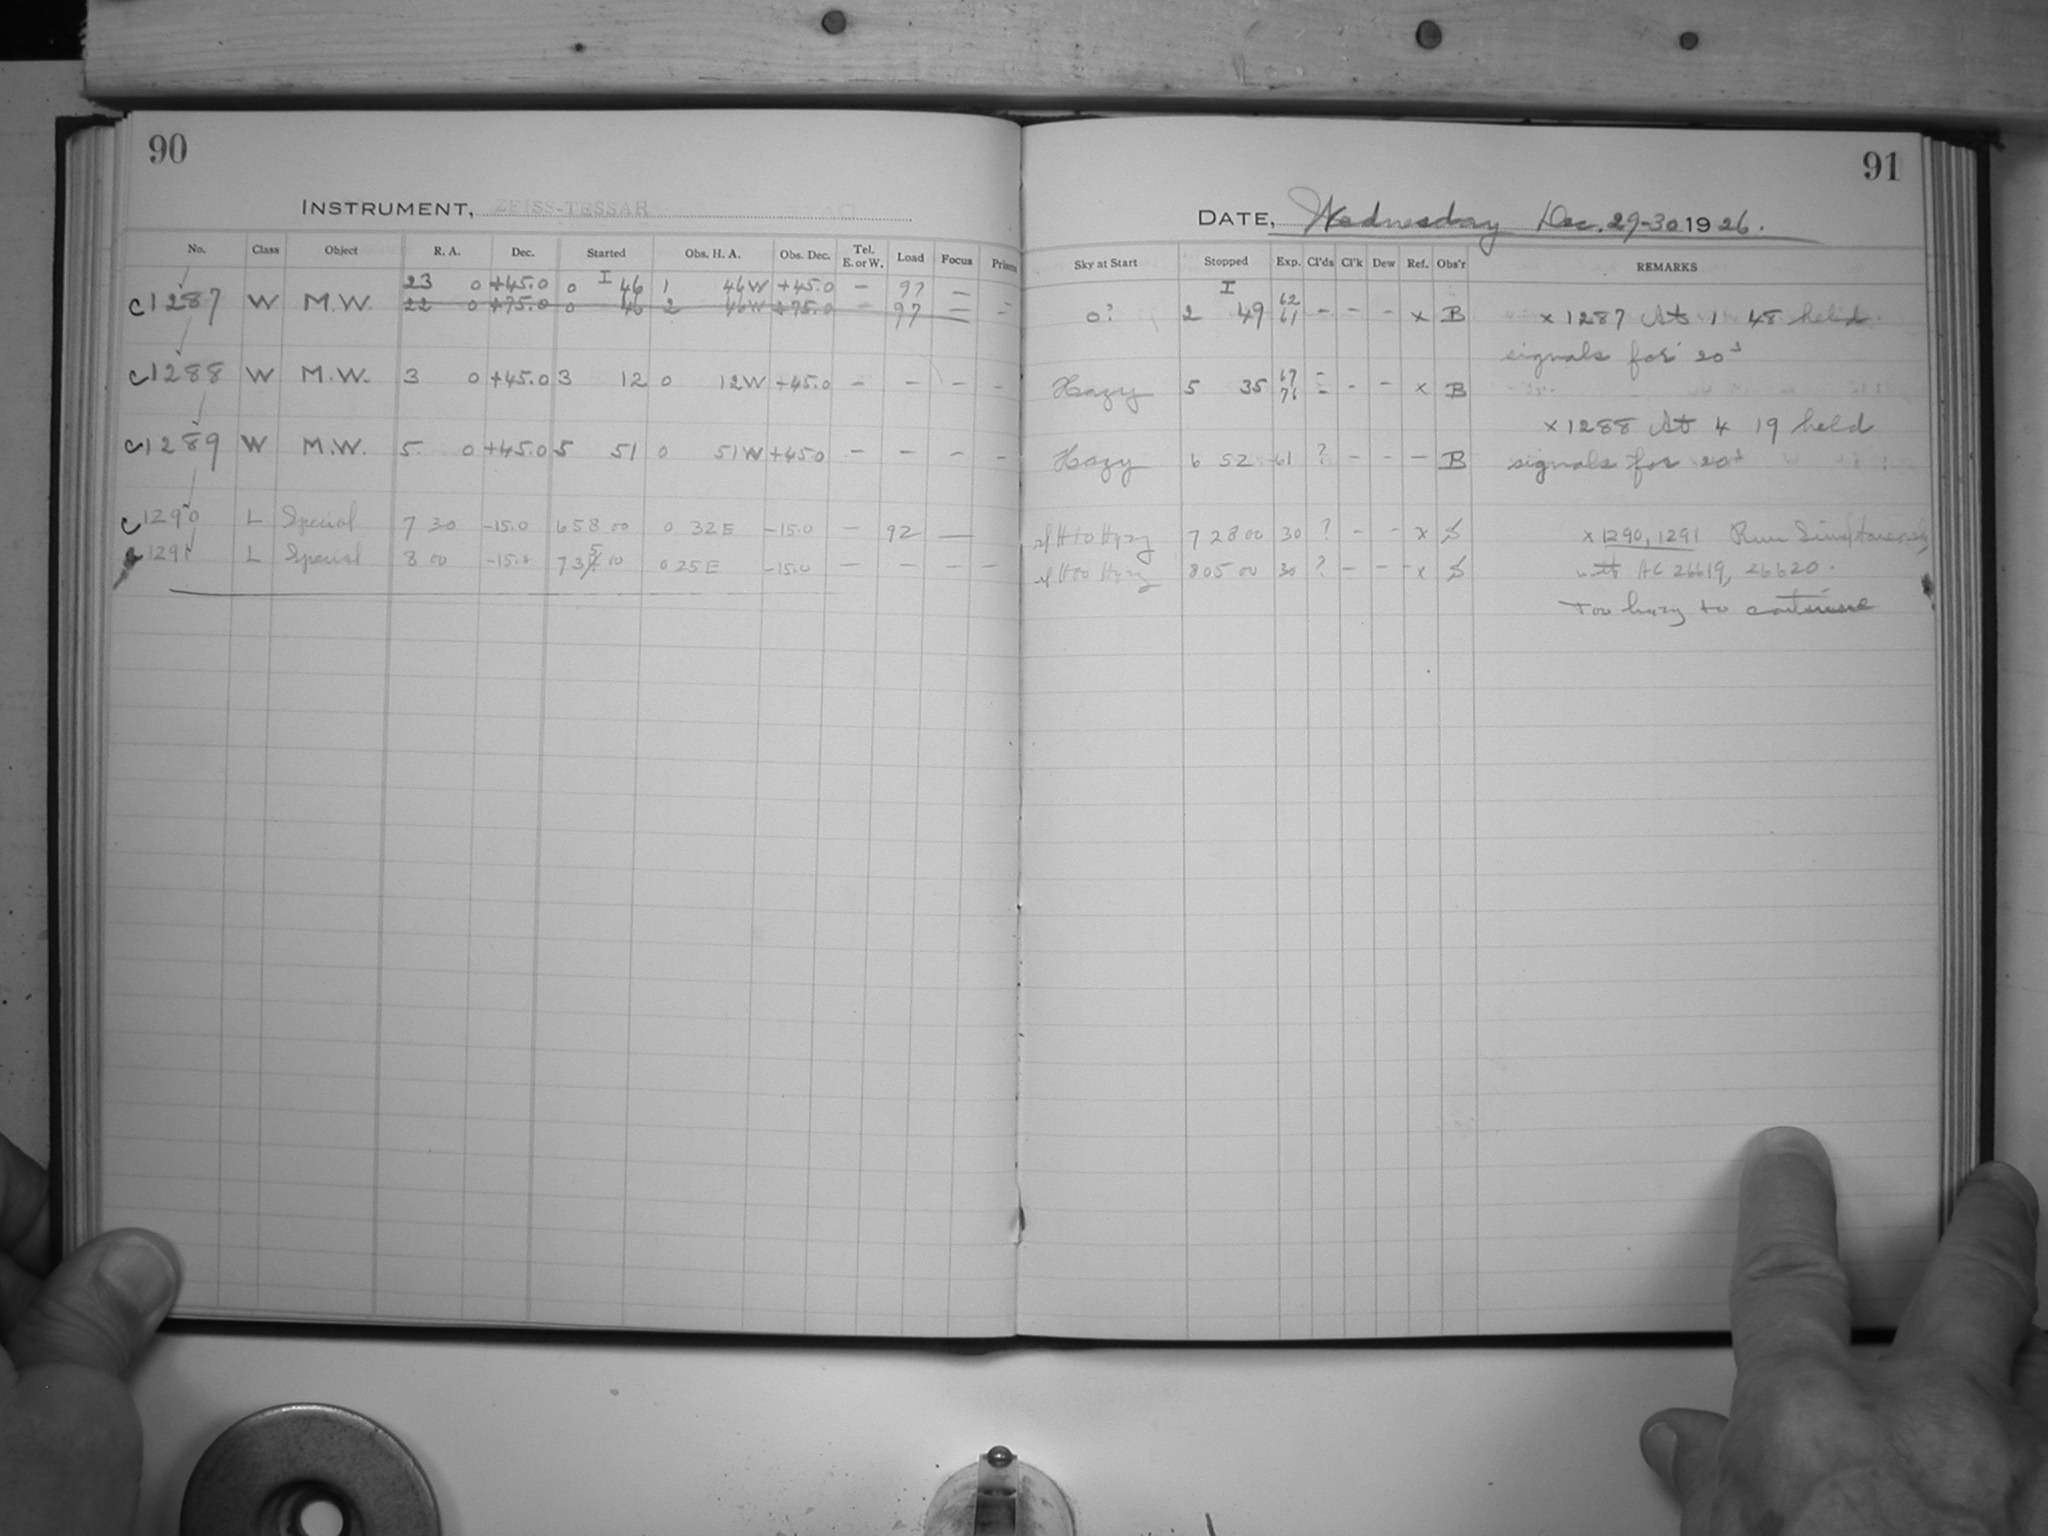 90
INSTRUMENT, ZEISS-TESSAR
No. Class Object R. A. Dec. Started Obs. H. A. Obs. Dec. Tel. E. or W. Load Focus Prism
23 0 +45.0 0 I 46 1 46W +45.0 – 97 –
c1287 W M.W. 22 0 +75.0 0 46 2 46W +75.0 – 97 – –
c1288 W M.W. 3 0 +45.0 3 12 0 12W +45.0 – – – –
c1289 W M.W. 5 0 +45.0 5 51 0 51W +45.0 – – – –
c1290 L Special 7 30 -15.0 6 58 00 0 32E -15.0 – 92 —
1291 L Special 8 00 -15.0 7 35 00 0 25E -15.0 – – – –
91
DATE, Wednesday Dec. 29-30 1926.
Sky at Start Stopped Exp. Cl'ds Cl'k Dew Ref. Obs'r REMARKS
0? 2 I 49 62 61 – – – x B x 1287 At 1 48 held
signals for 20s
Hazy 5 35 67 76 – – – – x B
x 1288 At 4 19 held
Hazy 6 52 61 ? – – – B signals for 20s
Hazy 7 28 00 30 ? – – x S x 1290, 1291 Run Simultaneously
Hazy 8 05 00 30 ? – – – x S with AC 26619, 26620.
Too hazy to continue